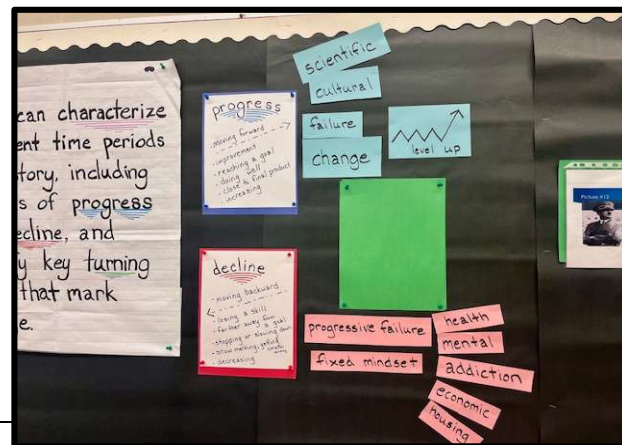 can characterize
ent time periods
tory, including
s of progress
ecline, and
y key turning
that mark
e.
progress
- moving forward
- improvement
- reaching a goal
- doing well
- close to final product
- increasing
decline
- moving backward
- losing a skill
- farther away from a goal
- stopping or slowing down
- snow melting, getting smaller
- decreasing
scientific
cultural
failure
change
level up
progressive failure
fixed mindset
health
mental
addiction
economic
housing
Picture #12